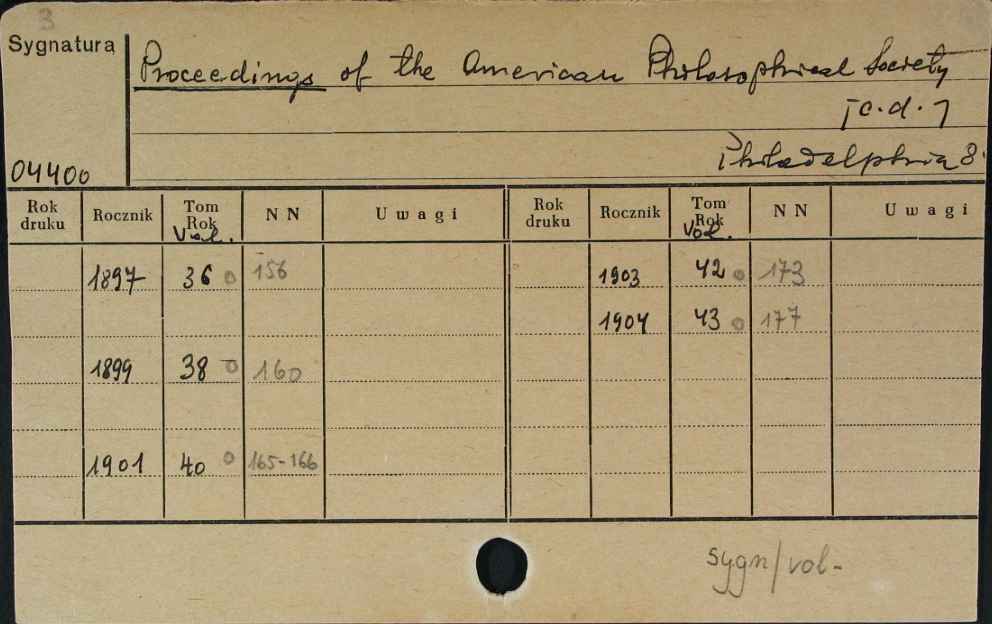 3
Sygnatura
Proceedings of the American Philosophical Society
[c.d.]
Philadelphia 8.
04400
Rok druku Rocznik Tom Rok Vol. NN Uwagi Rok druku Rocznik Tom Rok Vol. NN Uwagi
1897 36 0 156 1903 42 0 173
1904 43 0 177
1899 38 0 160
1901 40 0 165-166
sygn/vol-